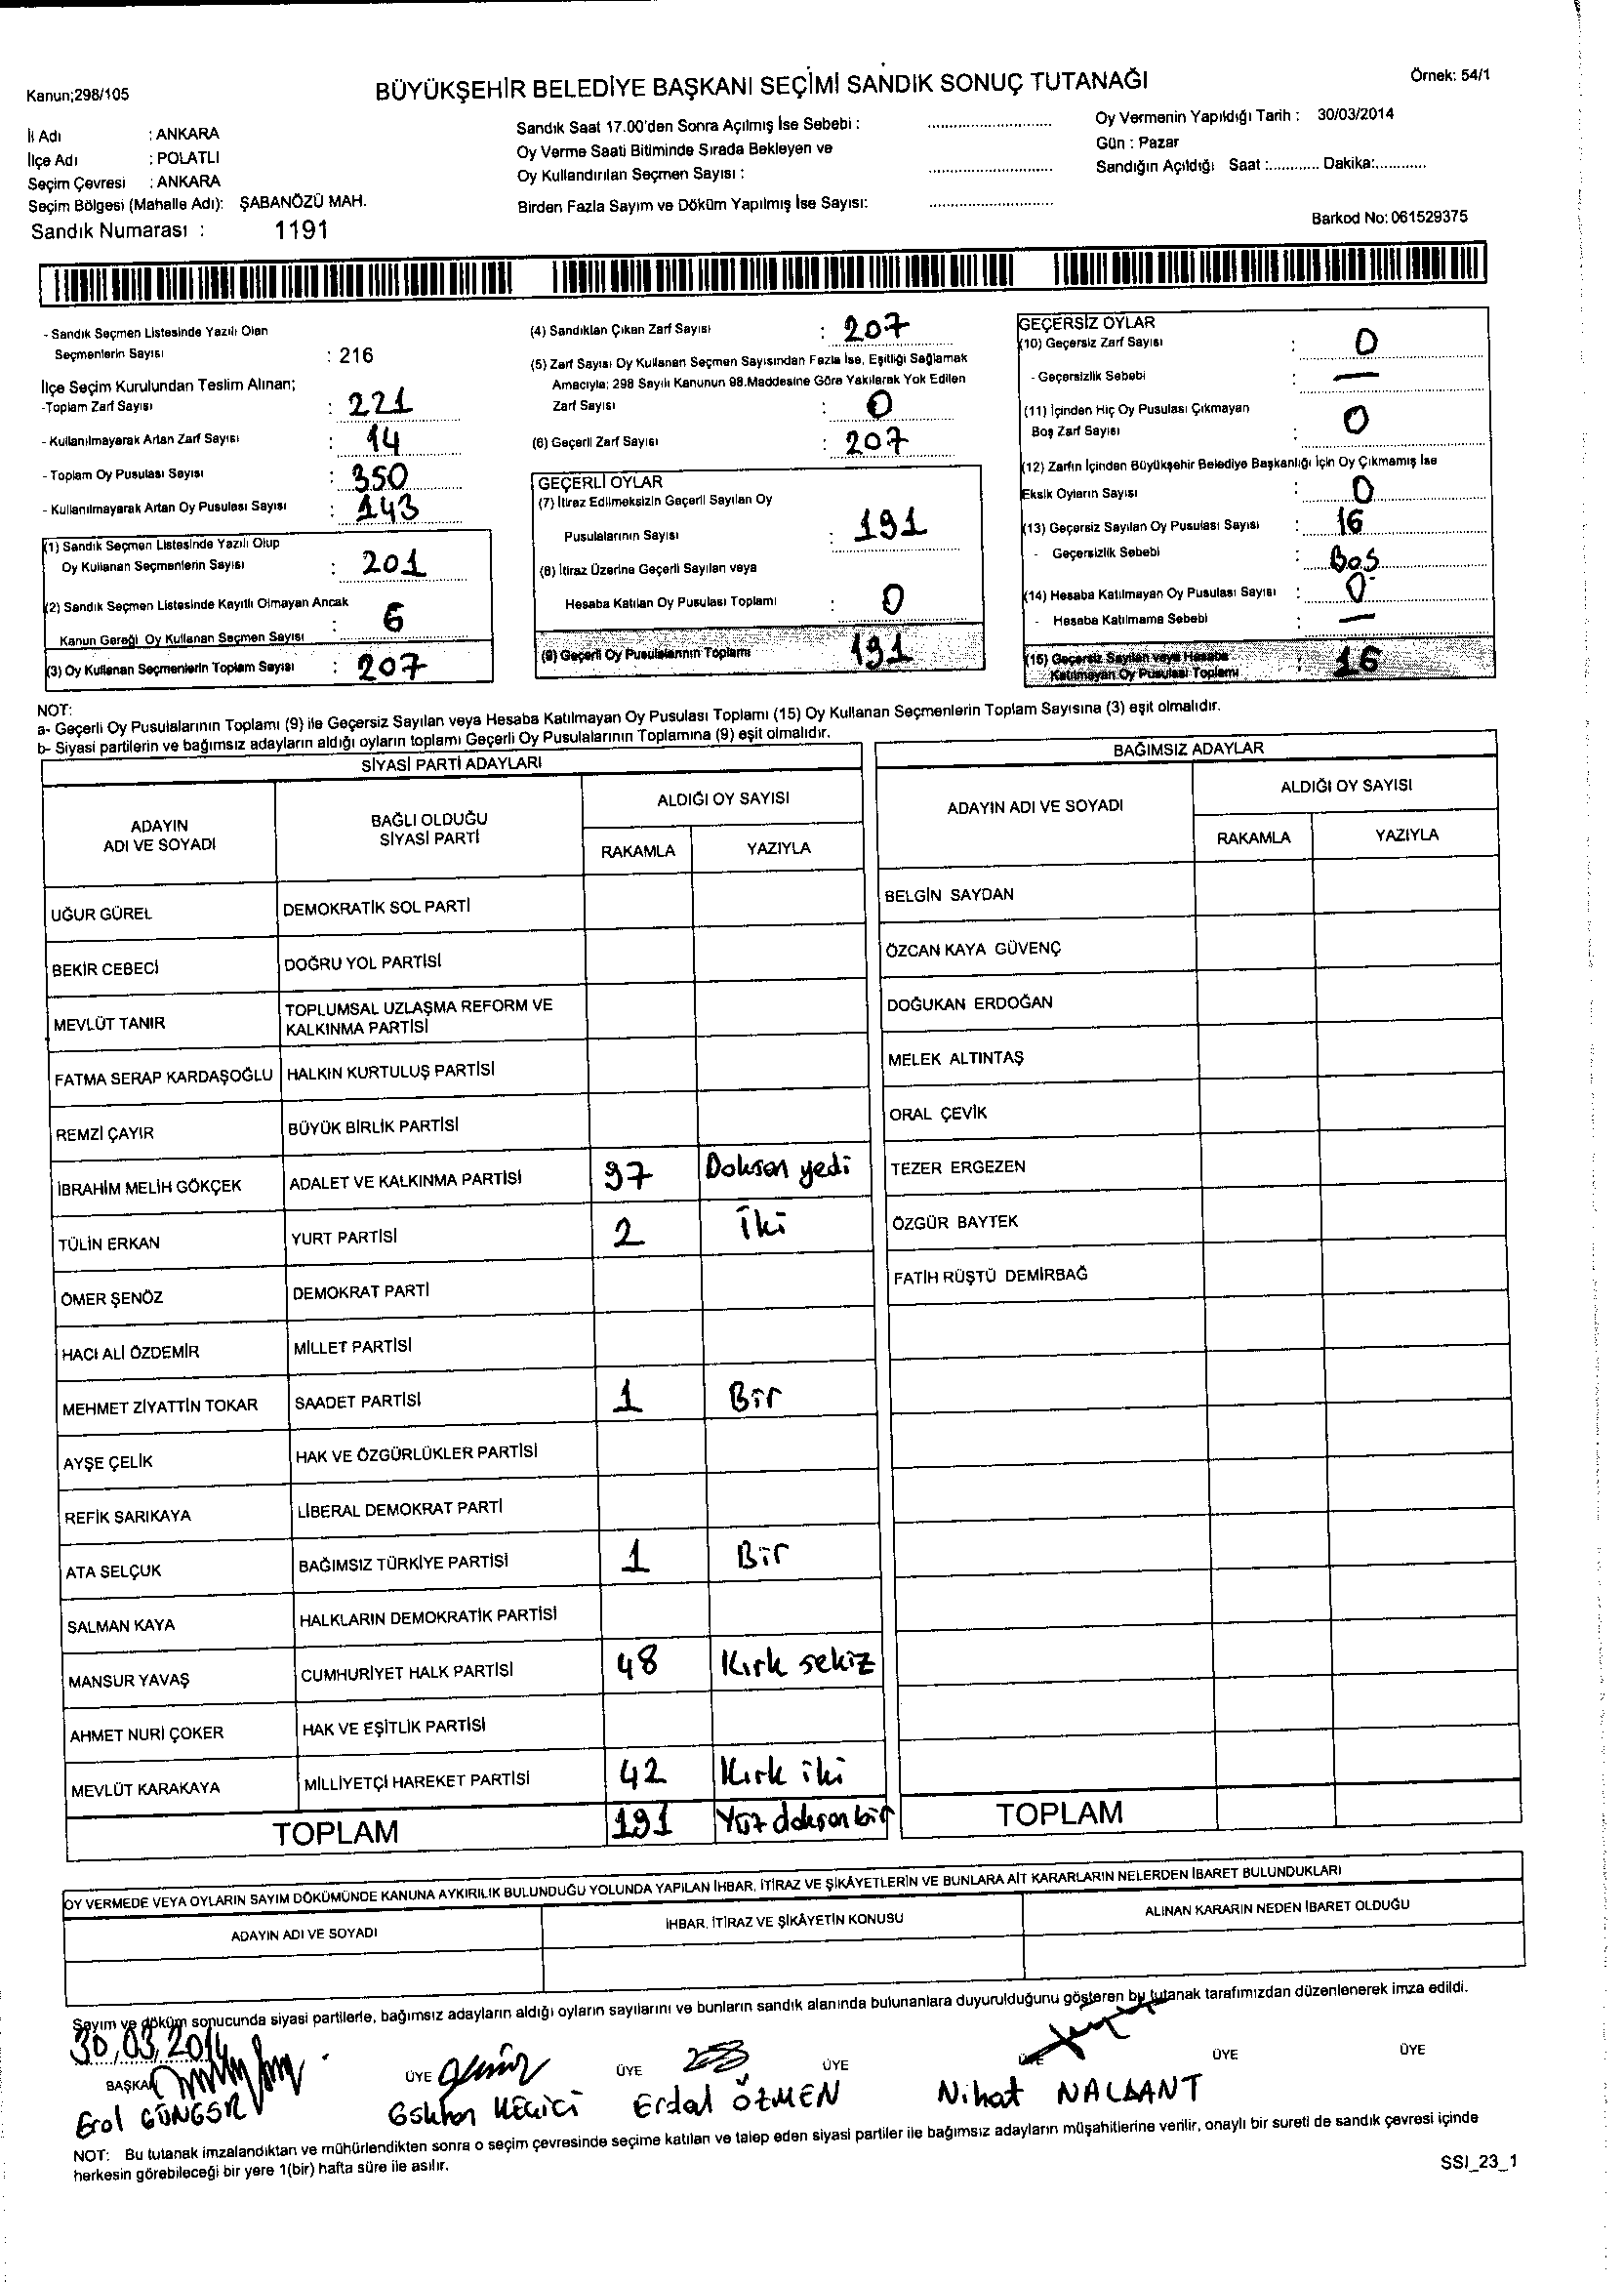 BÜYÜKŞEHİR BELEDİYE BAŞKANI SEÇİMİ SANDIK SONUÇ TUTANAĞI
Örnek: 54/1
Kanun;298/105
İl Adı : ANKARA
İlçe Adı : POLATLI
Seçim Çevresi : ANKARA
Seçim Bölgesi (Mahalle Adı): ŞABANÖZÜ MAH.
Sandık Numarası : 1191
Sandık Saat 17.00'den Sonra Açılmış İse Sebebi : ............................
Oy Verme Saati Bitiminde Sırada Bekleyen ve
Oy Kullandırılan Seçmen Sayısı : ............................
Birden Fazla Sayım ve Döküm Yapılmış İse Sayısı: ............................
Oy Vermenin Yapıldığı Tarih : 30/03/2014
Gün : Pazar
Sandığın Açıldığı Saat :............ Dakika:............
Barkod No: 061529375
- Sandık Seçmen Listesinde Yazılı Olan
Seçmenlerin Sayısı : 216
İlçe Seçim Kurulundan Teslim Alınan;
-Toplam Zarf Sayısı : 221
- Kullanılmayarak Artan Zarf Sayısı : 14
- Toplam Oy Pusulası Sayısı : 350
- Kullanılmayarak Artan Oy Pusulası Sayısı : 143
(1) Sandık Seçmen Listesinde Yazılı Olup
Oy Kullanan Seçmenlerin Sayısı : 201
(2) Sandık Seçmen Listesinde Kayıtlı Olmayan Ancak
Kanun Gereği Oy Kullanan Seçmen Sayısı : 6
(3) Oy Kullanan Seçmenlerin Toplam Sayısı : 207
(4) Sandıktan Çıkan Zarf Sayısı : 207
(5) Zarf Sayısı Oy Kullanan Seçmen Sayısından Fazla İse, Eşitliği Sağlamak
Amacıyla; 298 Sayılı Kanunun 98.Maddesine Göre Yakılarak Yok Edilen
Zarf Sayısı : 0
(6) Geçerli Zarf Sayısı : 207
GEÇERLİ OYLAR
(7) İtiraz Edilmeksizin Geçerli Sayılan Oy
Pusulalarının Sayısı : 191
(8) İtiraz Üzerine Geçerli Sayılan veya
Hesaba Katılan Oy Pusulası Toplamı : 0
(9) Geçerli Oy Pusulalarının Toplamı 191
GEÇERSİZ OYLAR
(10) Geçersiz Zarf Sayısı : 0
- Geçersizlik Sebebi : —
(11) İçinden Hiç Oy Pusulası Çıkmayan
Boş Zarf Sayısı : 0
(12) Zarfın İçinden Büyükşehir Belediye Başkanlığı İçin Oy Çıkmamış İse
Eksik Oyların Sayısı : 0
(13) Geçersiz Sayılan Oy Pusulası Sayısı : 16
- Geçersizlik Sebebi : Boş
(14) Hesaba Katılmayan Oy Pusulası Sayısı : 0
- Hesaba Katılmama Sebebi : —
(15) Geçersiz Sayılan veya Hesaba
Katılmayan Oy Pusulası Toplamı : 16
NOT:
a- Geçerli Oy Pusulalarının Toplamı (9) ile Geçersiz Sayılan veya Hesaba Katılmayan Oy Pusulası Toplamı (15) Oy Kullanan Seçmenlerin Toplam Sayısına (3) eşit olmalıdır.
b- Siyasi partilerin ve bağımsız adayların aldığı oyların toplamı Geçerli Oy Pusulalarının Toplamına (9) eşit olmalıdır.
SİYASİ PARTİ ADAYLARI
ADAYIN ADI VE SOYADI BAĞLI OLDUĞU SİYASİ PARTİ ALDIĞI OY SAYISI
RAKAMLA YAZIYLA
UĞUR GÜREL DEMOKRATİK SOL PARTİ
BEKİR CEBECİ DOĞRU YOL PARTİSİ
MEVLÜT TANIR TOPLUMSAL UZLAŞMA REFORM VE KALKINMA PARTİSİ
FATMA SERAP KARDAŞOĞLU HALKIN KURTULUŞ PARTİSİ
REMZİ ÇAYIR BÜYÜK BİRLİK PARTİSİ
İBRAHİM MELİH GÖKÇEK ADALET VE KALKINMA PARTİSİ 97 Doksan yedi
TÜLİN ERKAN YURT PARTİSİ 2 İki
ÖMER ŞENÖZ DEMOKRAT PARTİ
HACI ALİ ÖZDEMİR MİLLET PARTİSİ
MEHMET ZİYATTİN TOKAR SAADET PARTİSİ 1 Bir
AYŞE ÇELİK HAK VE ÖZGÜRLÜKLER PARTİSİ
REFİK SARIKAYA LİBERAL DEMOKRAT PARTİ
ATA SELÇUK BAĞIMSIZ TÜRKİYE PARTİSİ 1 Bir
SALMAN KAYA HALKLARIN DEMOKRATİK PARTİSİ
MANSUR YAVAŞ CUMHURİYET HALK PARTİSİ 48 Kırk sekiz
AHMET NURİ ÇOKER HAK VE EŞİTLİK PARTİSİ
MEVLÜT KARAKAYA MİLLİYETÇİ HAREKET PARTİSİ 42 Kırk iki
TOPLAM 191 Yüz doksan bir
BAĞIMSIZ ADAYLAR
ADAYIN ADI VE SOYADI ALDIĞI OY SAYISI
RAKAMLA YAZIYLA
BELGİN SAYDAN
ÖZCAN KAYA GÜVENÇ
DOĞUKAN ERDOĞAN
MELEK ALTINTAŞ
ORAL ÇEVİK
TEZER ERGEZEN
ÖZGÜR BAYTEK
FATİH RÜŞTÜ DEMİRBAĞ
TOPLAM
OY VERMEDE VEYA OYLARIN SAYIM DÖKÜMÜNDE KANUNA AYKIRILIK BULUNDUĞU YOLUNDA YAPILAN İHBAR, İTİRAZ VE ŞİKÂYETLERİN VE BUNLARA AİT KARARLARIN NELERDEN İBARET BULUNDUKLARI
ADAYIN ADI VE SOYADI İHBAR, İTİRAZ VE ŞİKÂYETİN KONUSU ALINAN KARARIN NEDEN İBARET OLDUĞU
Sayım ve döküm sonucunda siyasi partilerle, bağımsız adayların aldığı oyların sayılarını ve bunların sandık alanında bulunanlara duyurulduğunu gösteren bu tutanak tarafımızdan düzenlenerek imza edildi.
30.03.2014
BAŞKAN ÜYE ÜYE ÜYE ÜYE ÜYE ÜYE
Erol GÜNGÖR Gökhan KEÇİCİ Erdal ÖZMEN Nihat NALBANT
NOT: Bu tutanak imzalandıktan ve mühürlendikten sonra o seçim çevresinde seçime katılan ve talep eden siyasi partiler ile bağımsız adayların müşahitlerine verilir, onaylı bir sureti de sandık çevresi içinde
herkesin görebileceği bir yere 1(bir) hafta süre ile asılır.
SSI_23_1